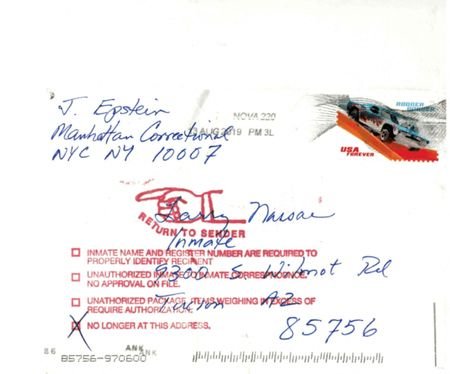 J. Epstein
Manhattan Correctional
NYC NY 10007
NOVA 220
AUG 2019 PM 3L
USA
FOREVER
RETURN TO SENDER
Larry Nassar
Inmate
9300 S. Wilmot Rd
Tucson AZ
85756
INMATE NAME AND REGISTER NUMBER ARE REQUIRED TO
PROPERLY IDENTIFY RECIPIENT
UNAUTHORIZED INMATE TO INMATE CORRESPONDENCE.
NO APPROVAL ON FILE.
UNAUTHORIZED PACKAGE, ITEMS WEIGHING IN EXCESS OF
REQUIRE AUTHORIZATION.
X NO LONGER AT THIS ADDRESS.
ANK
ANK
85756-970600